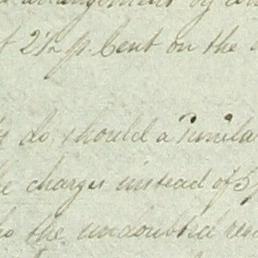 arrangement by
2½ p. Cent on the
do should a Simila
charges instead of 5
the undoubted